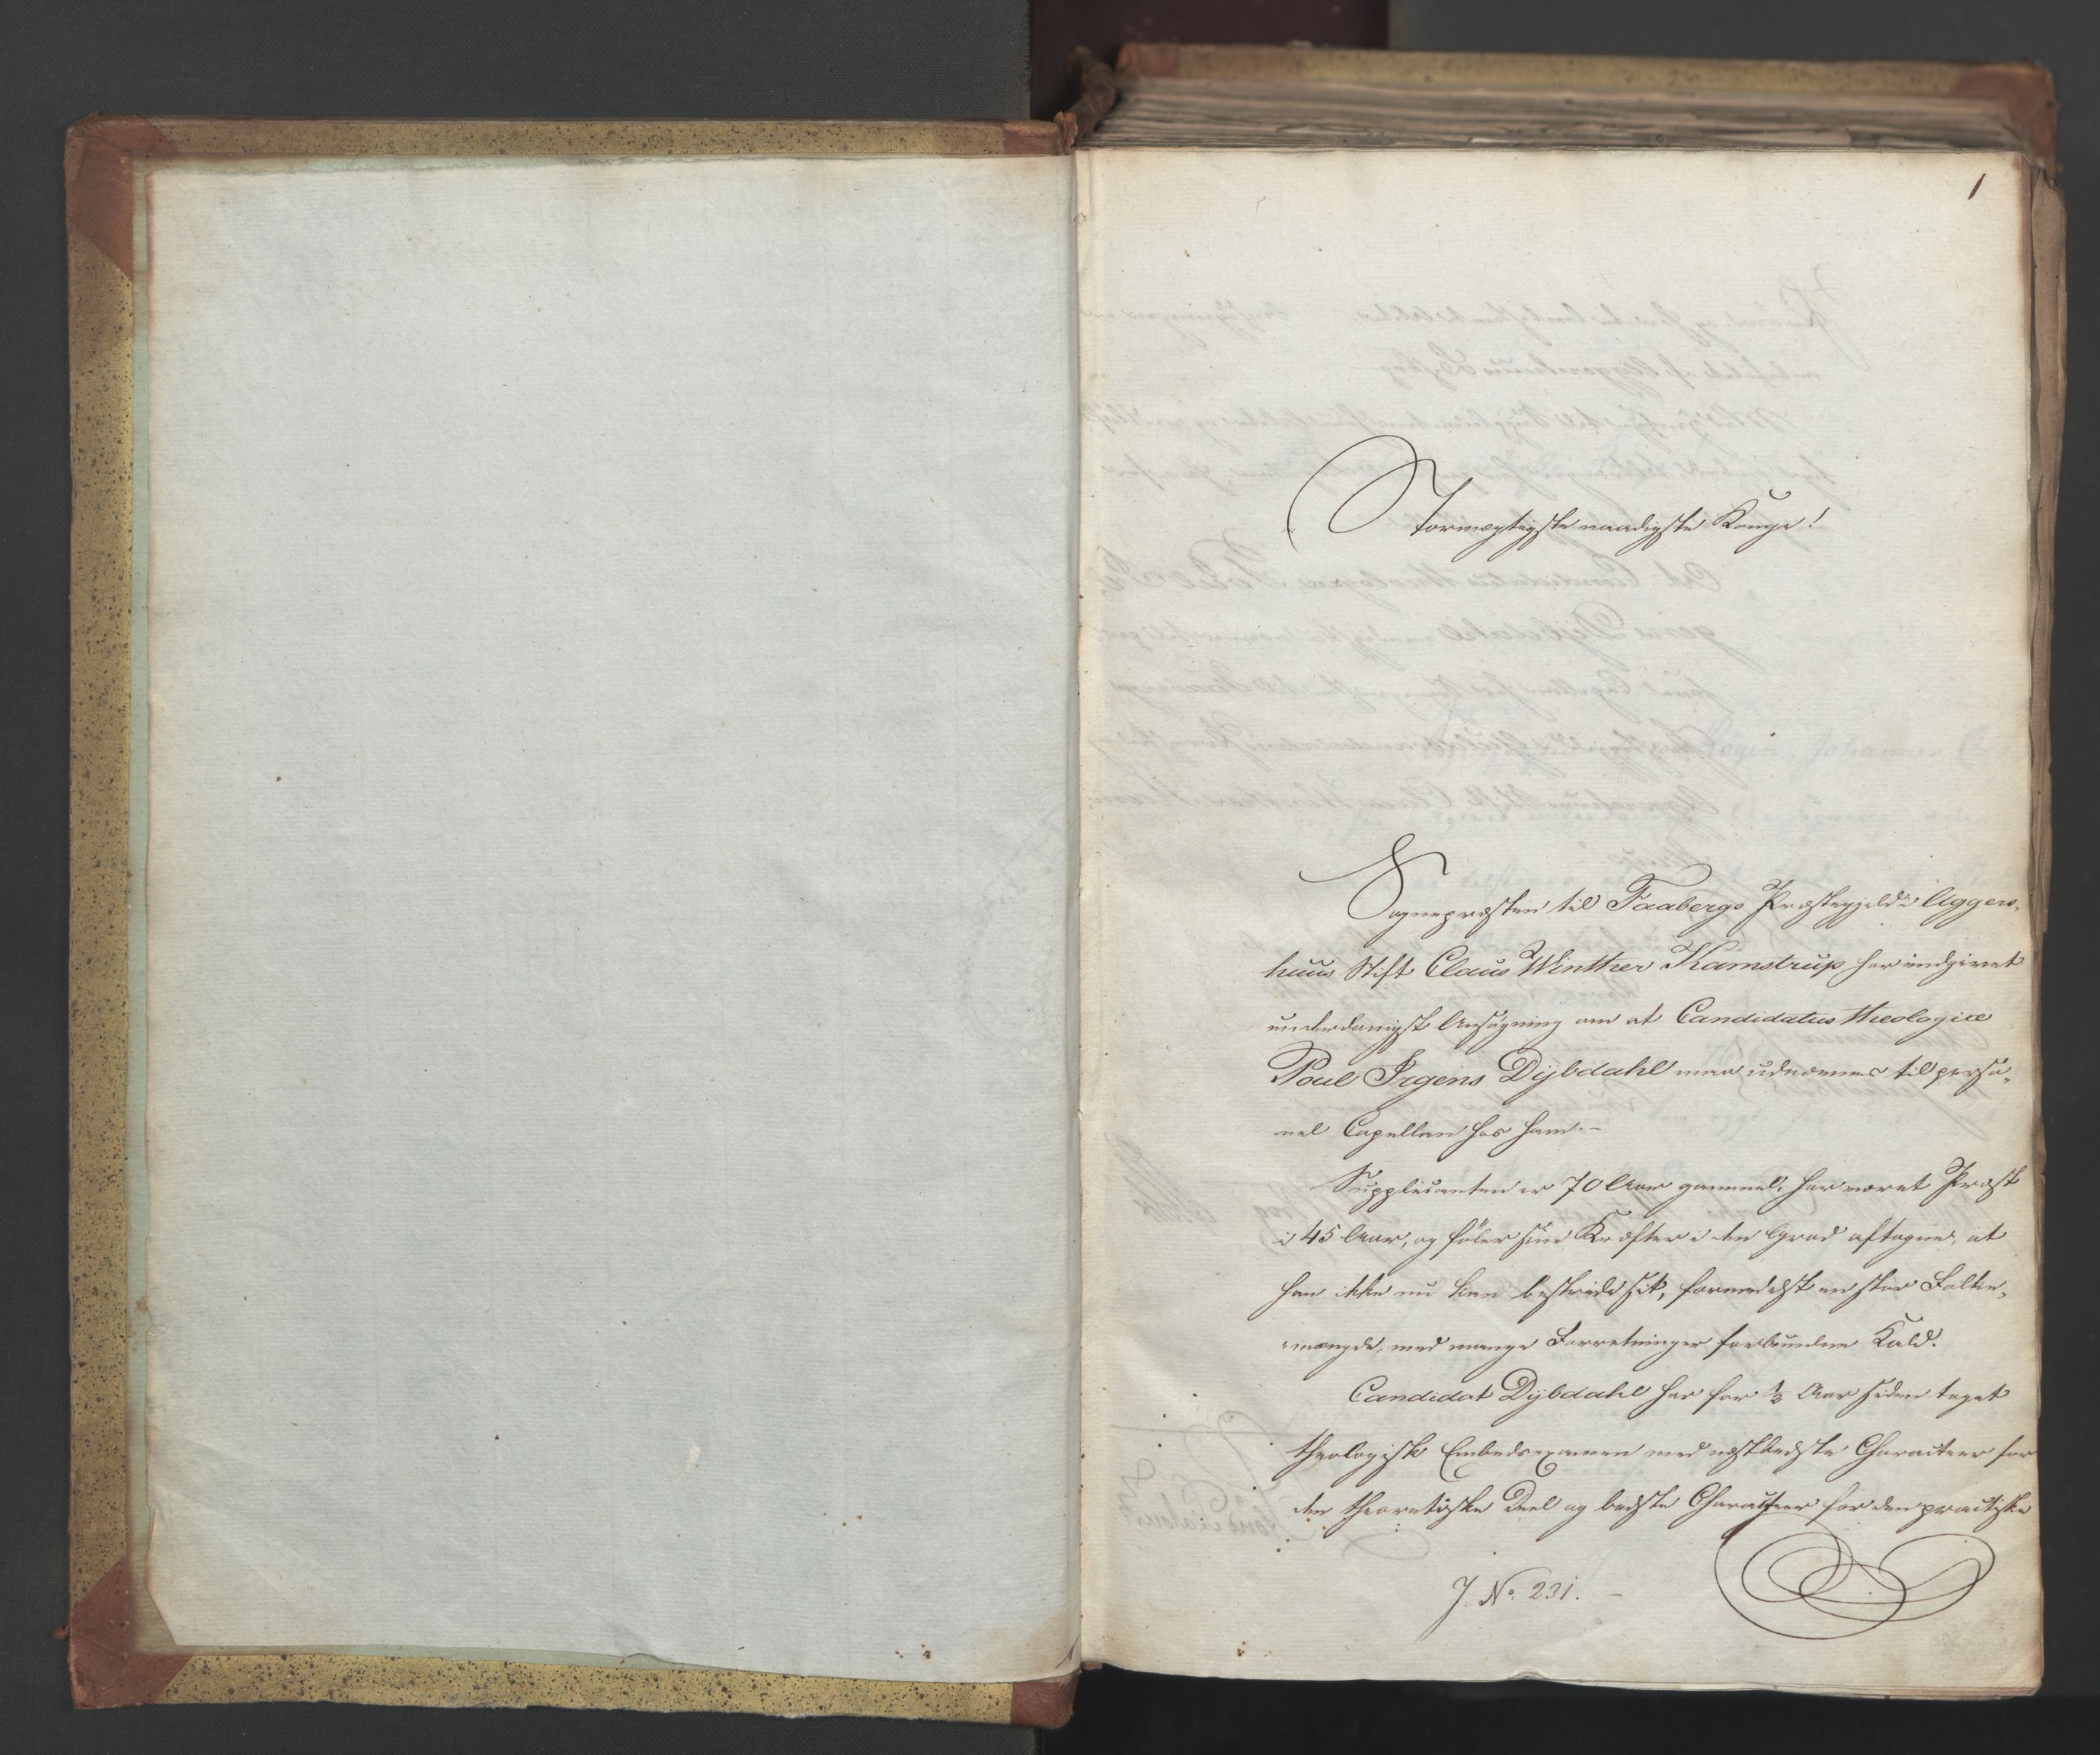 1
Stormægtigste naadigste Konge!
Sognepræsten til Faabergs Præstegjeld i Aggers-
huus Stift Claus Winther Kamstrup har indgivet
underdanigst Ansøgning om at Candidatus theologiæ
Poul Irgens Dÿbdahl maa udnævnes til perso-
nel Capellan hos ham.-
Supplicanten er 70 Aar gammel, har været Præst
i 45 Aar, og føler sine Kræfter i den Grad aftagne, at
han ikke nu kan bestride sit, formedelst en stor Folke-
mængde, med mange Forretninger forbundne Kald.
Candidat Dÿbdahl har for ½ Aar siden taget
theologisk Embedsexamen med næstbedste Characteer for
den theoretiske Deel og bedste Characteer for den practiske
J. No 231. -